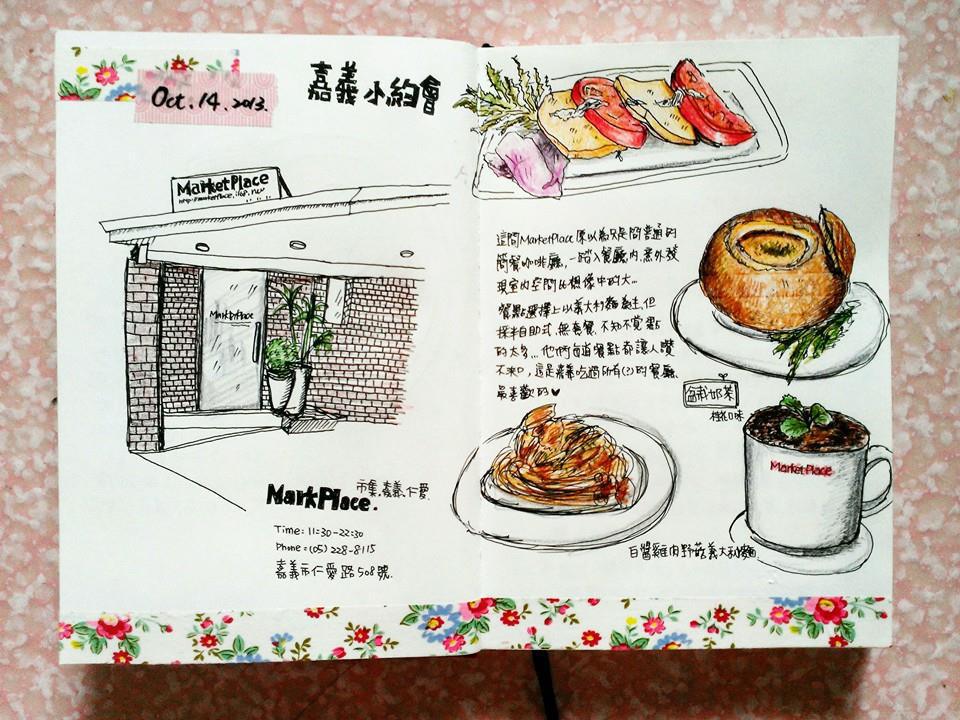 Oct. 14. 2013.
嘉義小約會
MarketPlace
MarketPlace
MarkPlace.
市集.嘉義.仁愛
Time: 11:30-22:30
Phone: (05) 228-8115
嘉義市仁愛路508號.
這間MarketPlace原以為只是間普通的
簡餐咖啡廳,一踏入餐廳內,意外發
現室內空間比想像中的大...
餐點選擇上以義大利麵為主,但
採半自助式,無套餐.不知不覺點
的太多...他們每道餐點都讓人讚
不絕口,這是嘉義吃過所有(?)的餐廳
最喜歡的♥
盆栽奶茶
MarketPlace
白醬雞肉野菇義大利麵